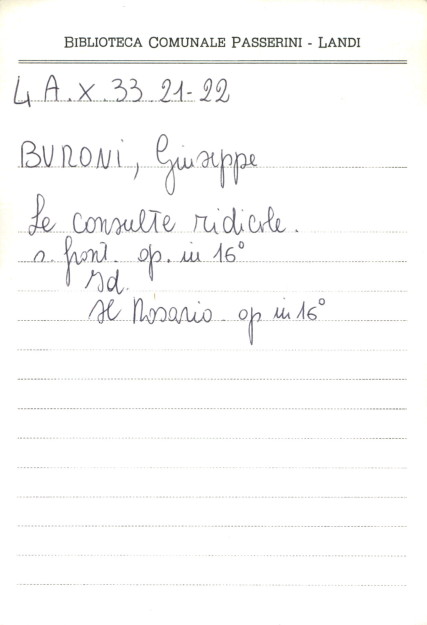 BIBLIOTECA COMUNALE PASSERINI - LANDI
4 A.X.33.21-22
BURONI, Giuseppe
Le consulte ridicole.
s. front. op. in 16°
Id.
Il Rosario. op in 16°